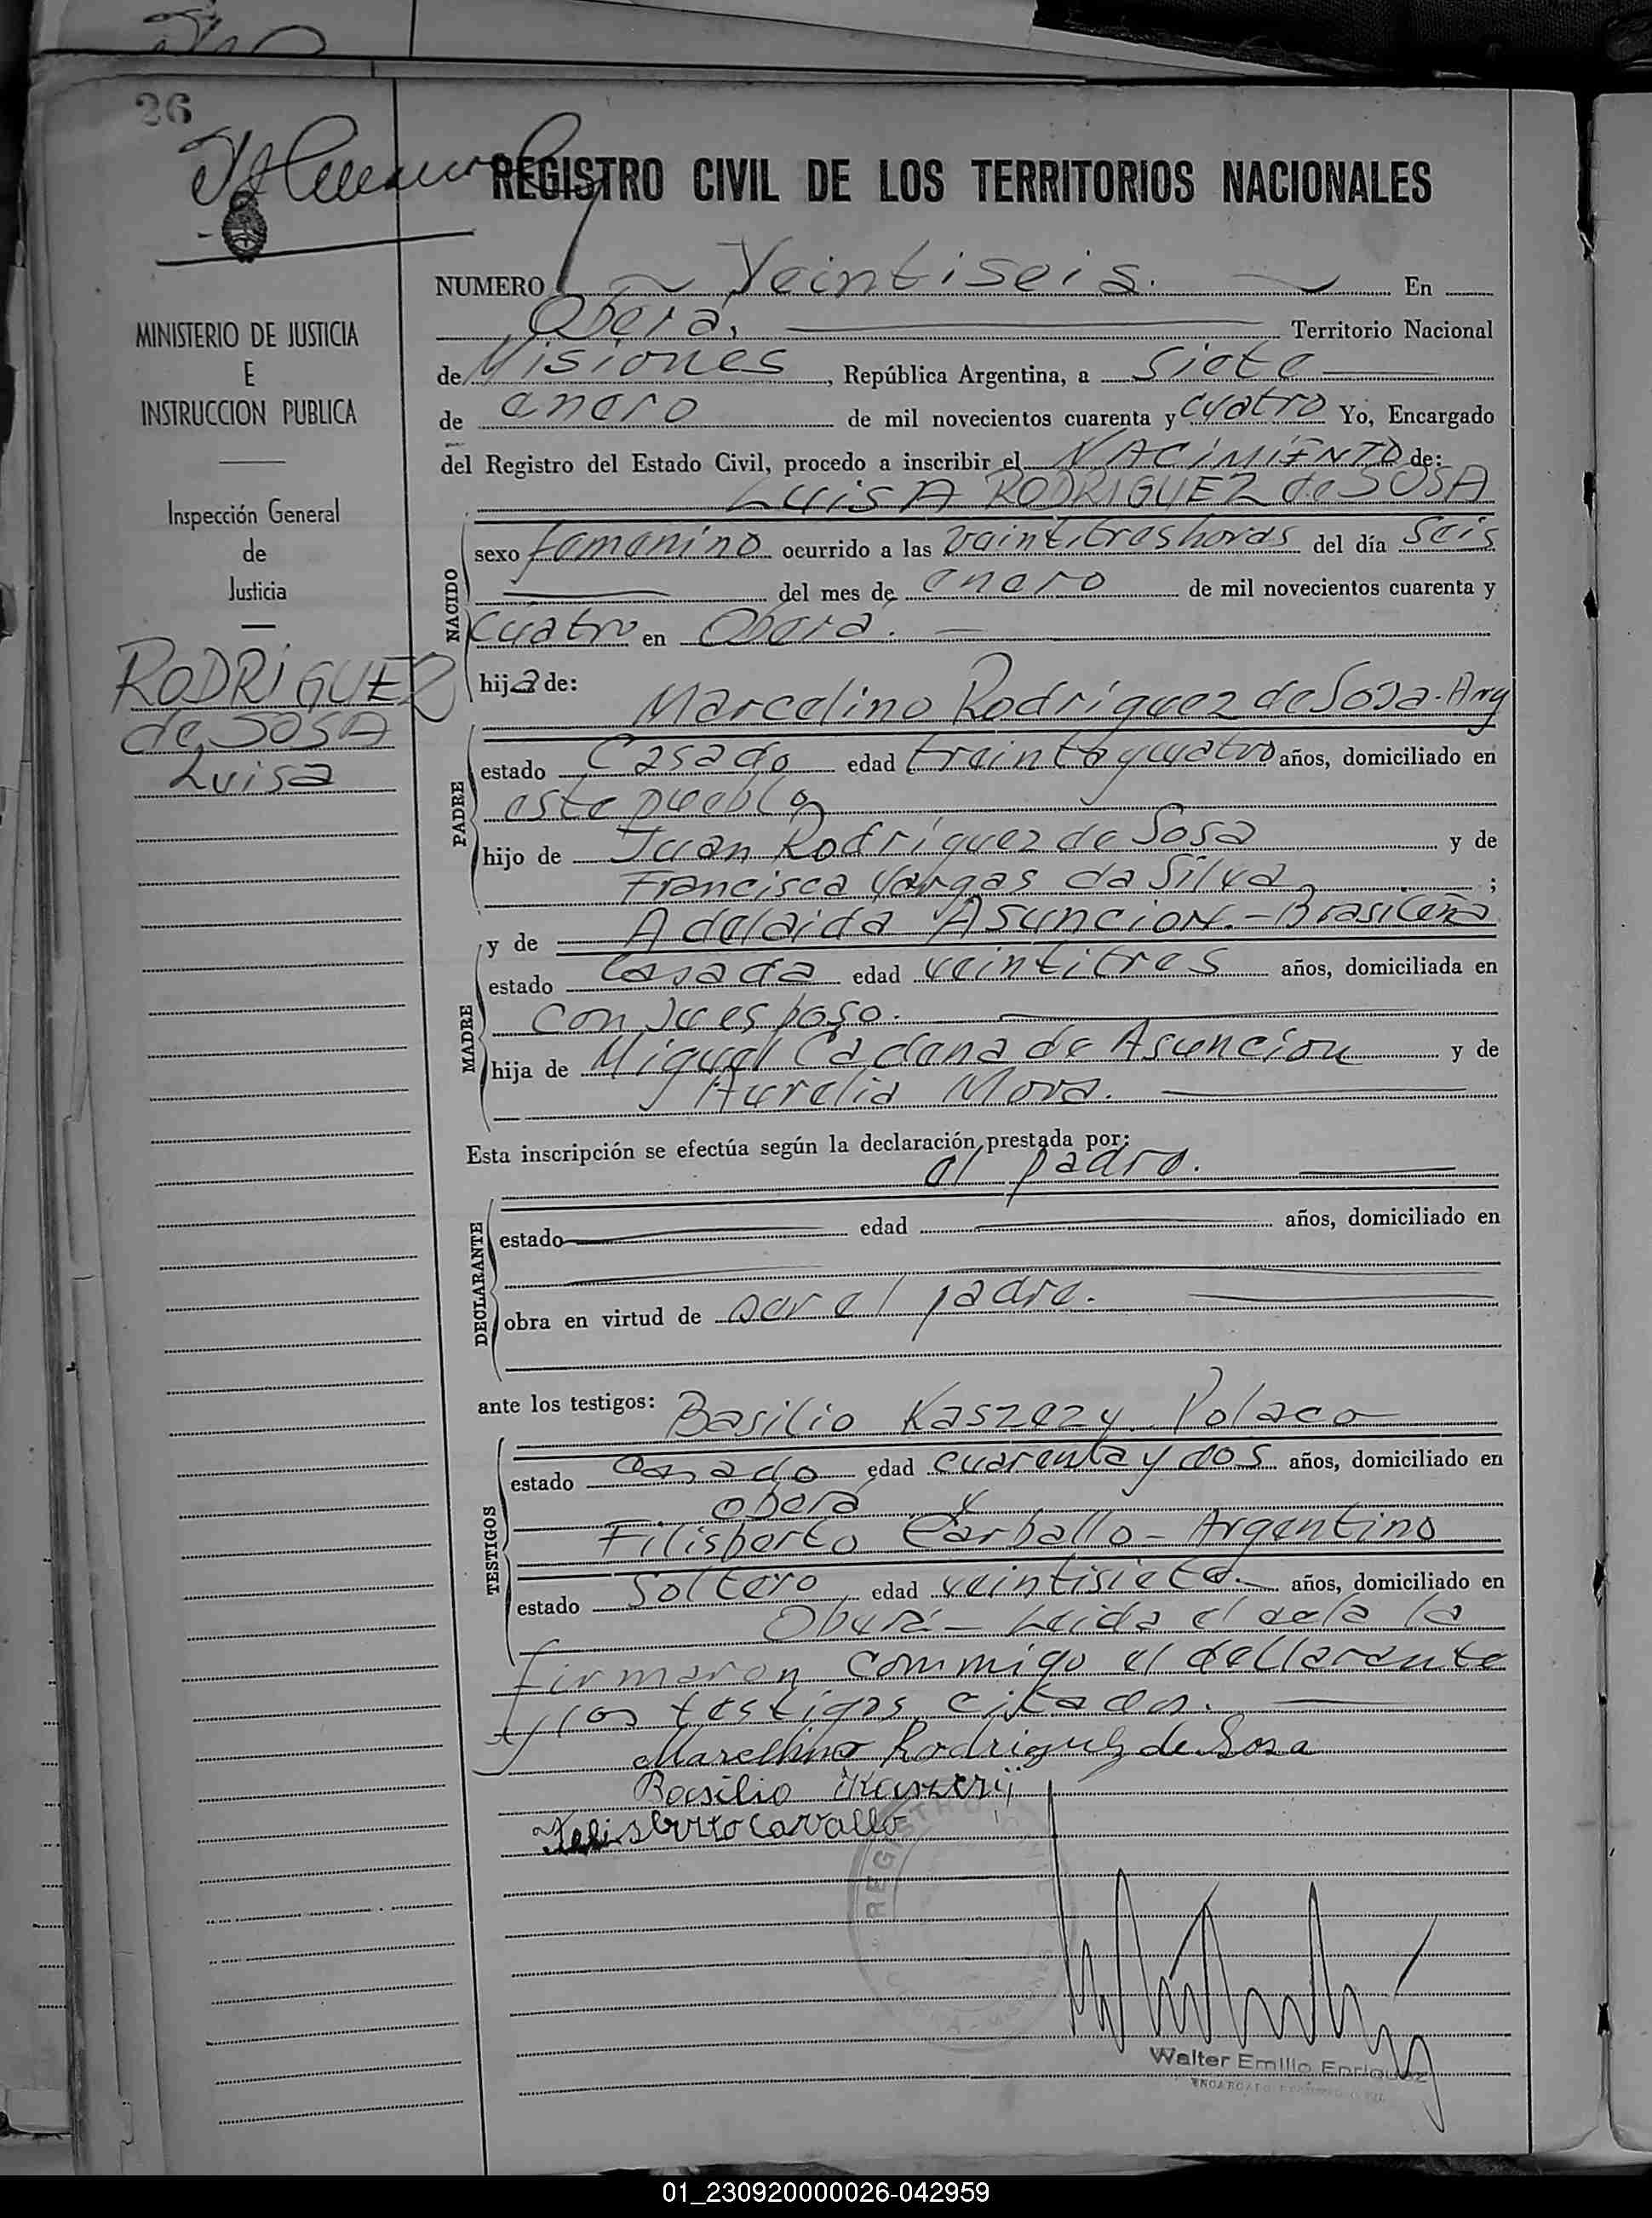 26
REGISTRO CIVIL DE LOS TERRITORIOS NACIONALES
MINISTERIO DE JUSTICIA
E
INSTRUCCION PUBLICA
Inspección General
de
Justicia
RODRIGUEZ
de SOSA
Luisa
NUMERO Veintiseis. En
Oberá, Territorio Nacional
de Misiones, República Argentina, a siete
de enero de mil novecientos cuarenta y cuatro Yo, Encargado
del Registro del Estado Civil, procedo a inscribir el NACIMIENTO de:
LUISA RODRIGUEZ de SOSA
NACIDO
sexo femenino ocurrido a las veintitres horas del día seis
del mes de enero de mil novecientos cuarenta y
cuatro en Oberá.
hija de:
Marcelino Rodríguez de Sosa - Arg
PADRE
estado Casado edad treinta y cuatro años, domiciliado en
este pueblo
hijo de Juan Rodríguez de Sosa y de
Francisca Vargas da Silva ;
MADRE
y de Adelaida Asuncion. - Brasileña
estado Casada edad veintitres años, domiciliada en
con su esposo.
hija de Miguel Cadena de Asuncion y de
Aurelia Mora.
Esta inscripción se efectúa según la declaración prestada por:
el padre.
DECLARANTE
estado edad años, domiciliado en
obra en virtud de ser el padre.
ante los testigos: Basilio Kaszezy. Polaco
TESTIGOS
estado Casado edad cuarenta y dos años, domiciliado en
Oberá y
Filisberto Carballo - Argentino
estado Soltero edad veintisiete. años, domiciliado en
Oberá - Leida el acta la
firmaron commigo el decllarante
y los testigos citados.
Marcelino Rodriguez de Sosa
Basilio
Felisberto Carvallo
REGISTRO
MISIONES
Walter Emilio Enriquez
ENCARGADO REGISTRO CIVIL
01_230920000026-042959